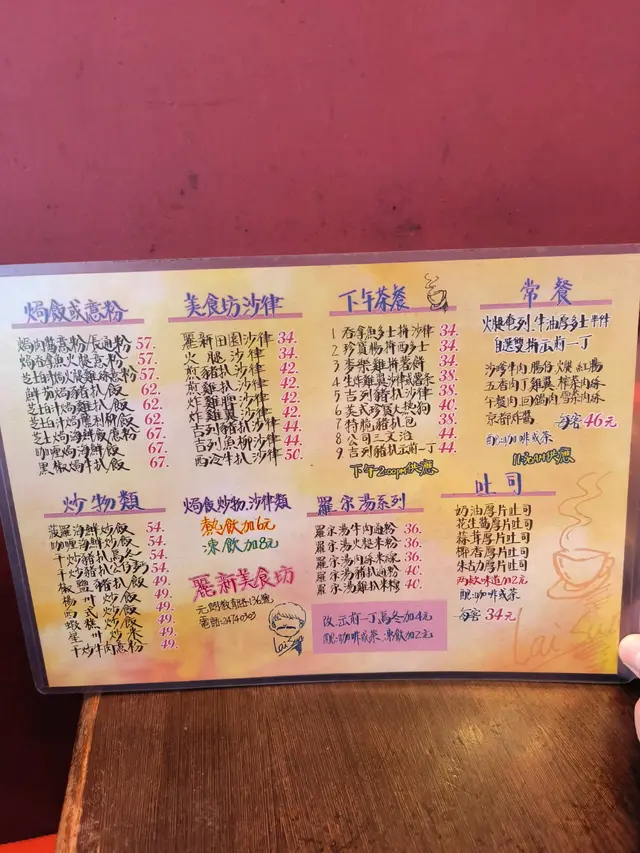 焗飯或意粉
焗肉醬意粉/長通粉 57.
焗吞拿魚火腿意粉 57.
芝士白汁焗火腿雞絲意粉 57.
鮮茄焗豬扒飯 62.
芝士白汁焗雞飯 62.
芝士白汁焗 飯 62.
芝士焗海鮮飯意粉 67.
咖喱焗海鮮飯 67.
黑椒焗牛扒飯 67.
美食坊沙律
麗新田園沙律 34.
火腿沙律 34.
煎豬扒沙律 42.
煎雞扒沙律 42.
炸雞髀沙律 42.
炸雞翼沙律 42.
吉列豬扒沙律 44.
吉列魚柳沙律 44.
西冷牛扒沙律 50.
下午茶餐
1 吞拿魚多士拼沙律 34.
2 珍寶腸拼西多士 34.
3 麥樂雞拼薯餅 34.
4 生炸雞翼沙律或薯條 38.
5 吉列豬扒沙律 38.
6 美式珍寶熱狗 40.
7 特脆豬扒包 38.
8 公司三文治 44.
9 吉列豬扒 前一丁 44.
下午2:00PM供應
常餐
火腿奄列.牛油厚多士半件
自選雙拼云前一丁
沙嗲牛肉 腸仔 火腿 紅腸
五香肉丁 雞翼 榨菜肉絲
午餐肉 回鍋肉 雪菜肉絲
京都炸醬 每客46元
配:咖啡或茶
11:30AM供應
炒物類
菠蘿海鮮炒飯 54.
咖喱海鮮炒飯 54.
干炒豬扒烏冬 54.
干炒豬扒公仔麵 54.
椒鹽豬扒飯 49.
楊州炒飯 49.
西式炒飯 49.
蝦仁炒飯 49.
星州炒米 49.
干炒牛肉意粉 49.
焗食炒物.沙律類
熱飲加6元
凍飲加8元
麗新美食坊
元朗教育路136號
電話:24740303
Lai Sun
羅宋湯系列
羅宋湯牛肉通粉 36.
羅宋湯火腿米粉 36.
羅宋湯肉絲米線 36.
羅宋湯豬扒通粉 40.
羅宋湯雞扒米線 40.
改.云前一丁.烏冬加4元
配:咖啡或茶 凍飲加2元
吐司
奶油厚片吐司
花生醬厚片吐司
蒜茸厚片吐司
椰香厚片吐司
朱古力厚片吐司
兩款味道加2元
配:咖啡或茶
每客34元
Lai Sun